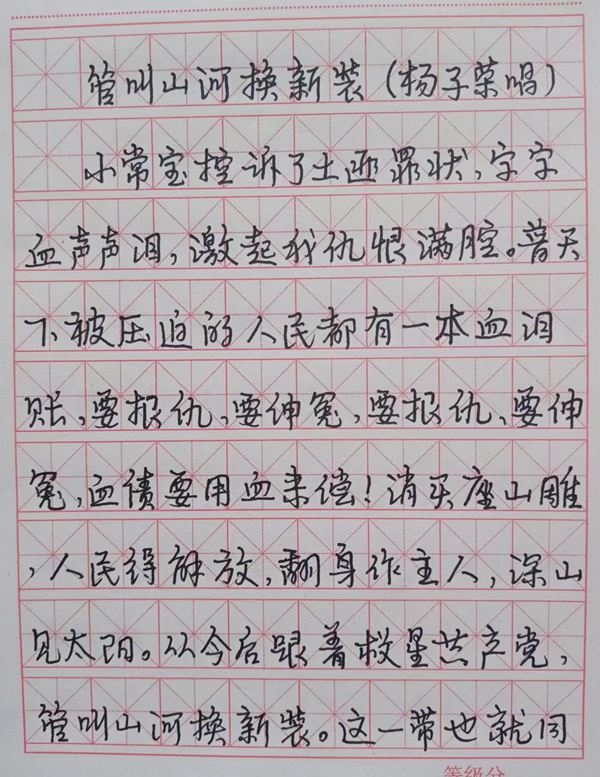 管叫山河换新装(杨子荣唱)
小常宝控诉了土匪罪状,字字
血声声泪,激起我仇恨满腔。普天
下被压迫的人民都有一本血泪
账,要报仇,要伸冤,要报仇,要伸
冤,血债要用血来偿!消灭座山雕
,人民得解放,翻身作主人,深山
见太阳。从今后跟着救星共产党,
管叫山河换新装。这一带也就同
等级分